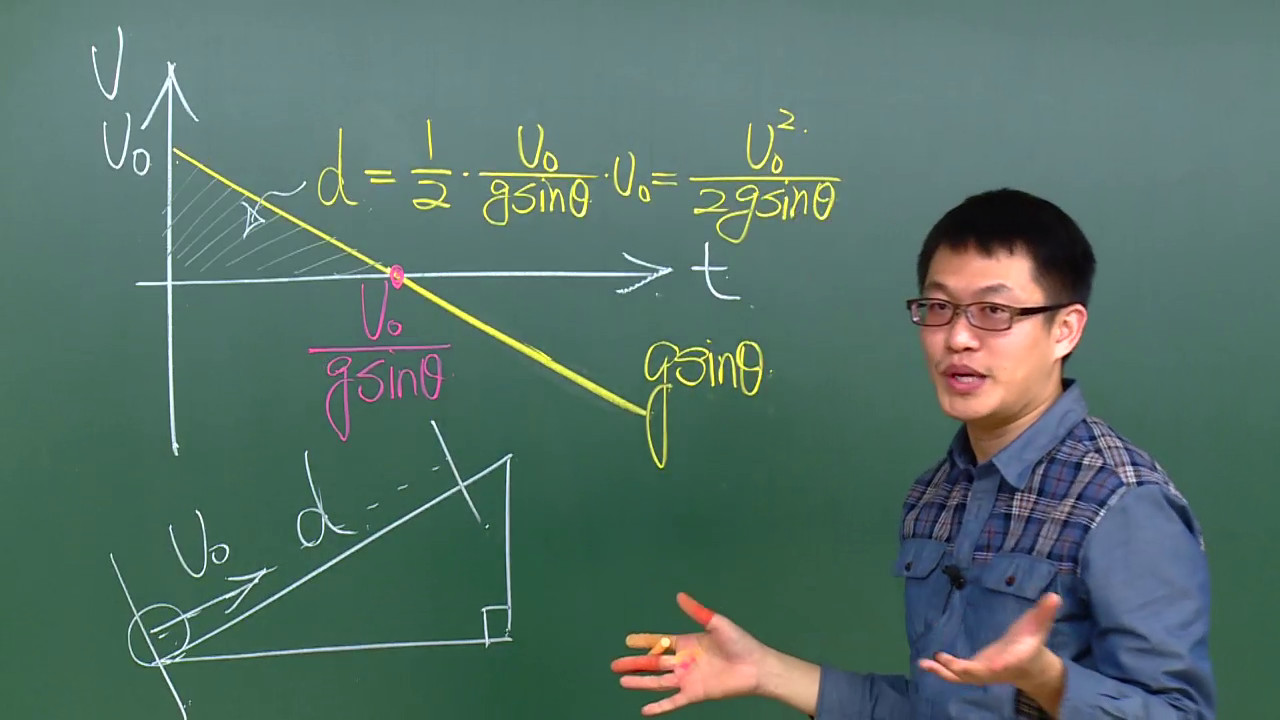 v
v₀
d = 1/2 · v₀/gsinθ · v₀ = v₀²/2gsinθ
t
v₀/gsinθ
gsinθ
d
v₀